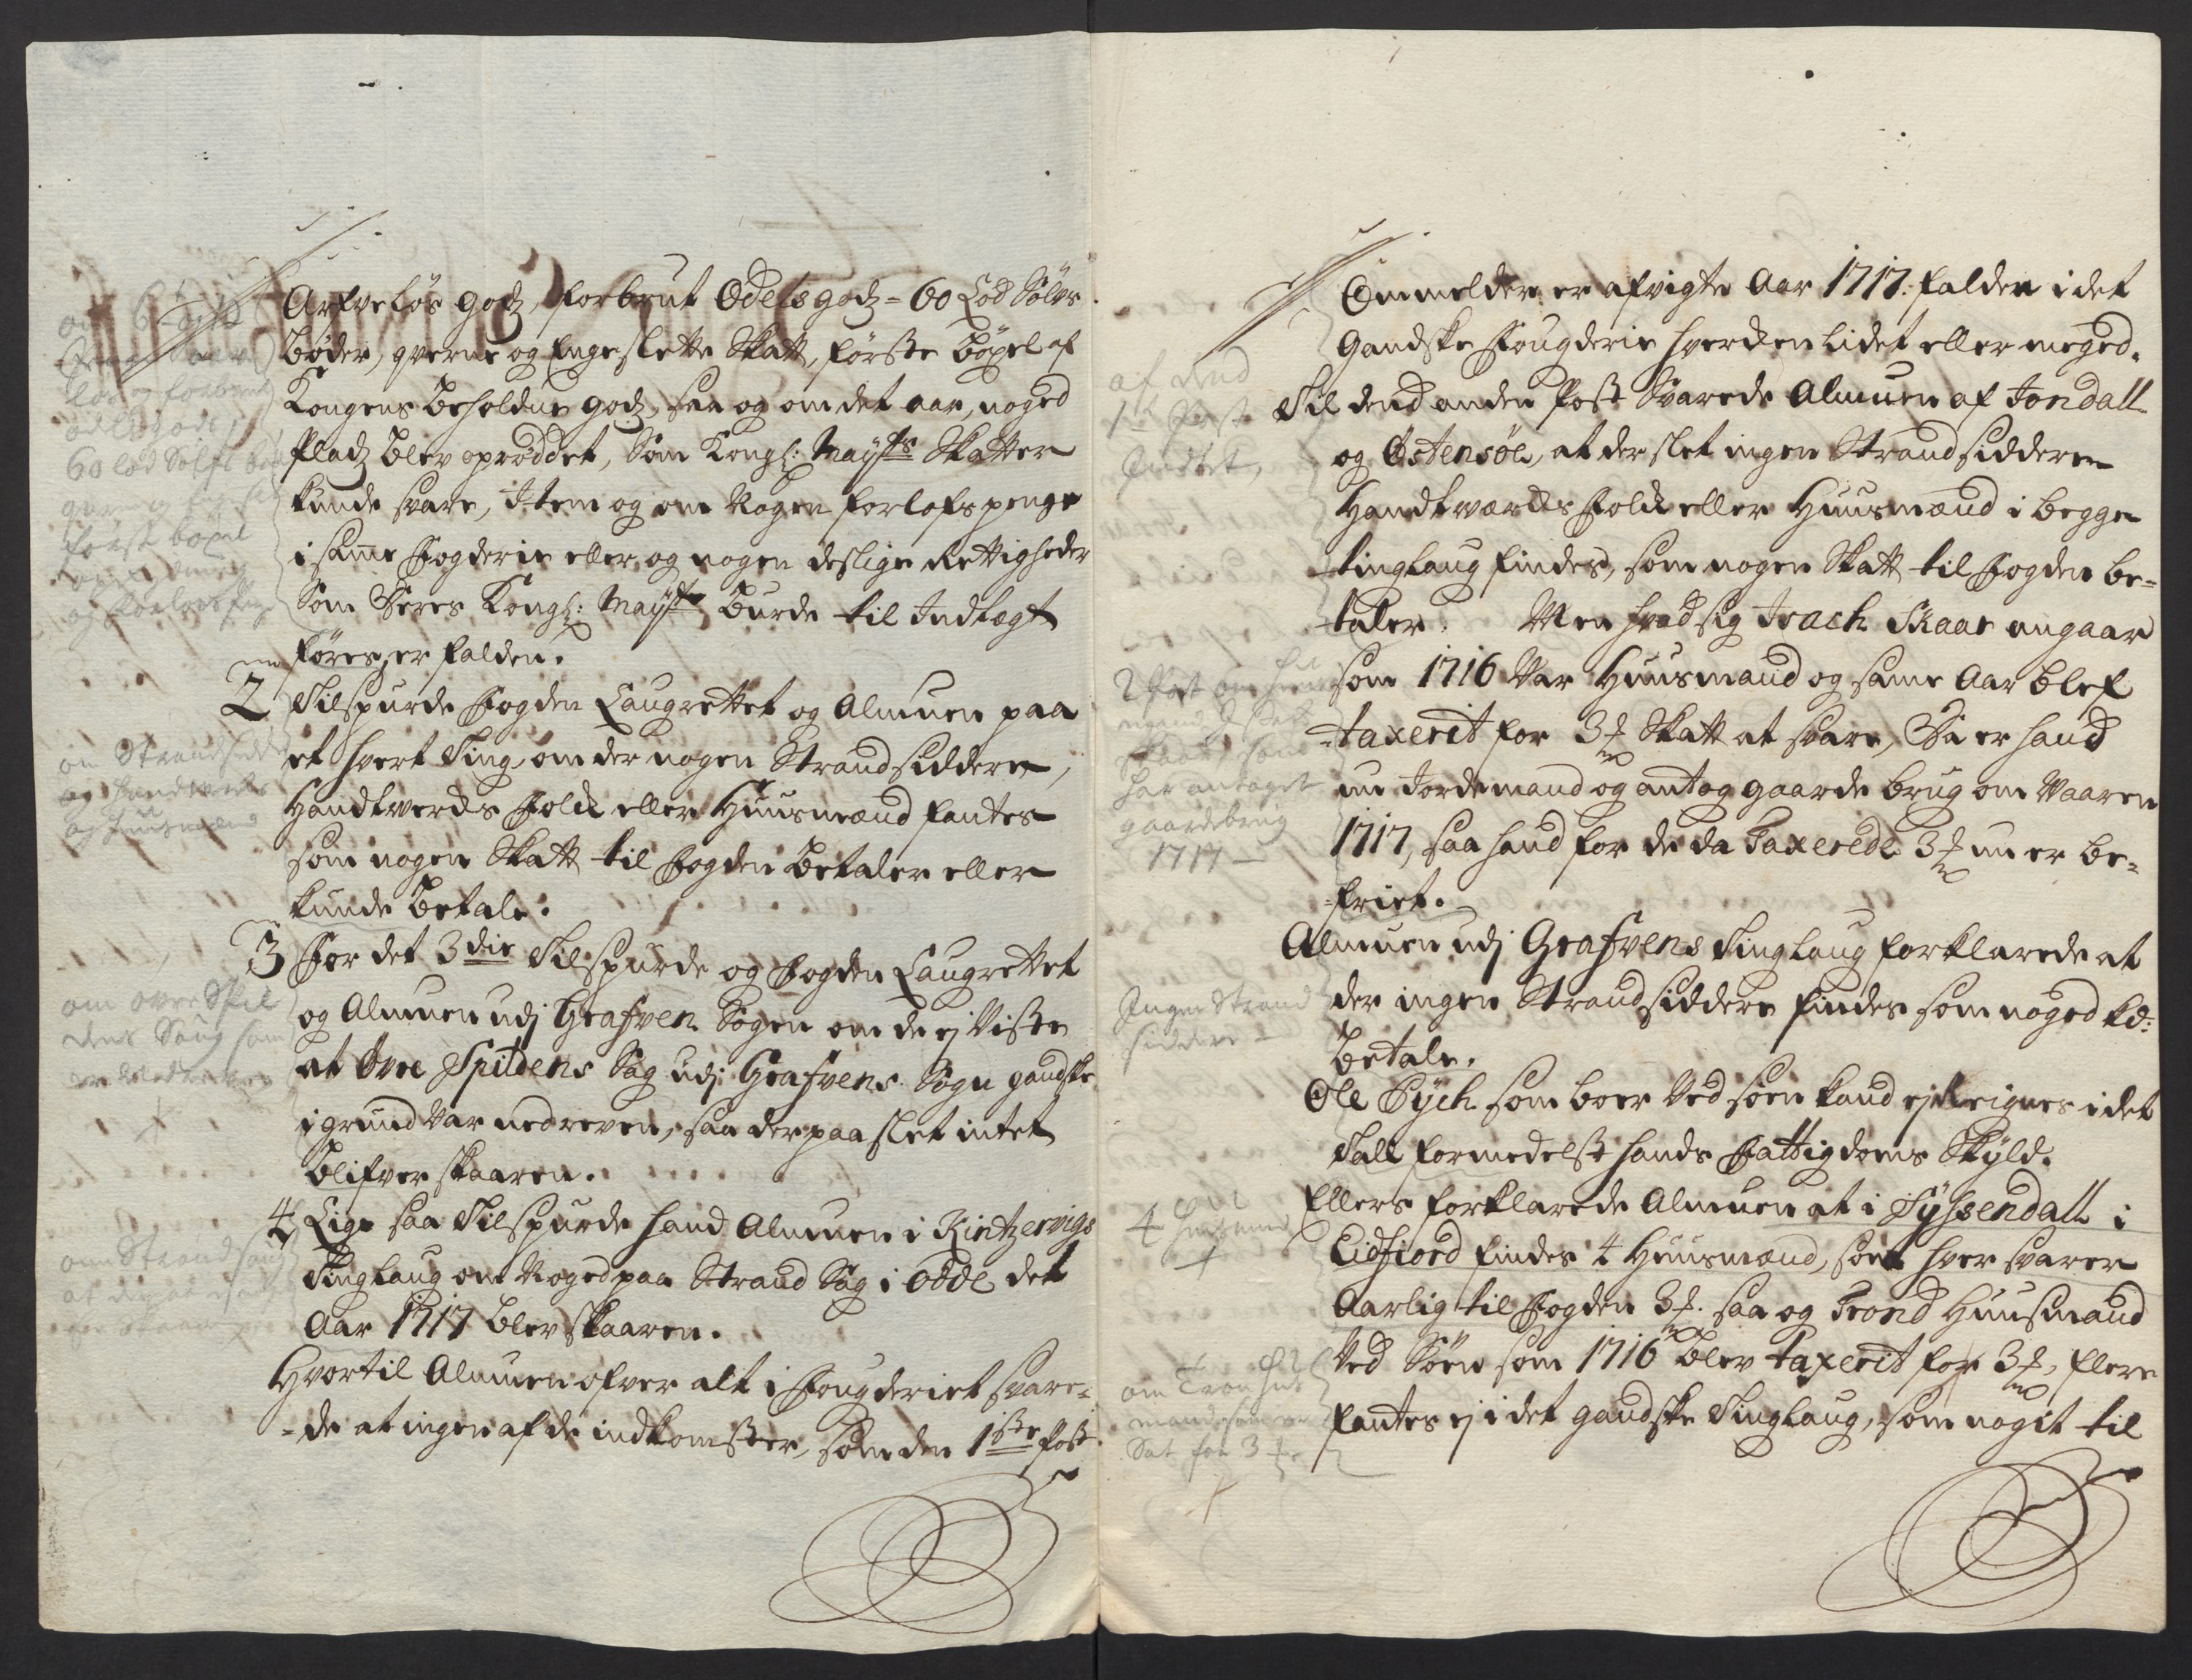 Arfveløs godz, forbrut Odels godz - 60 Lod Sølvs
bøder, qverne og Engeslette Skatt, første böxel af
Kongens beholdne godz, saa og om det aar, noged
Pladz blev oprøddet, Som Kongl: Maysts Skatter
kunde svare, Item og om Nogen forlofs penge
i samme Fogderie eller og nogen deslige Rettigheder
Som Deres Kongl: Mayst burde til Indtægt
føres, er falden.
2 Tilspurde Fogden Laugrettet og Almuen paa
et hvert Ting, om der nogen Strandsiddere,
Handtverks Folck eller Huusmænd fantes
som nogen Skatt til Fogden betaler eller
kunde betale.
3 For det 3die Tilspurde og Fogden Laugrettet
og Almuen udj Grafven Sogen om de ej Viste
at Øvre Spildens Sag udj Grafvens Sogn gandske
i grund Var nedreven, saa der paa slet intet
blifver skaaren.
4 Lige saa Tilspurde hand Almuen i Kintzervigs
Tinglaug om Noged paa Strand Sag i Odde det
Aar 1717 blev skaaren.
Hvortil Almuen ofver alt i Fougderiet svare-
-de at ingen af de indkomster, som den 1ste post
om Strandsidd
og Handverks
og Huusmænd
om øvre Spil
dens Saug som
er nedreven
om Strand saug
60 lod Sølfs
første böxel
og forlovs penge
Ommelder, er afvigte Aar 1717: falden i det
Gandske Fougderie hverken lidet eller meged.
Til dend anden Post Svarede Almuen af Jondall
og Østensøe, at der slet ingen Strandsiddere
Handtværcks Folck eller Huusmænd i begge
tinglaug findes, som nogen Skatt til Fogden be-
taler. Men hvad sig Isach Skaar angaar
som 1716 Var Huusmand og same Aar blef
taxerit for 3 Skatt at svare, Da er hand
nu Jordemand og antog gaarde brug om Vaaren
1717, saa hand for de da Taxerede 3 nu er be-
friet.
Almuen udj Grafvens Tinglaug forklarede at
der ingen Strandsiddere findes som noged kd:
betale.
Ole Pych som boer Ved søen kand ej Reignes i det
Tall formedelst hands Fattigdoms Skyld.
Ellers forklarede Almuen at i Syssendall i
Eidfiord findes 4 Huusmænd, som hver svarer
Aarlig til Fogden 3. saa og Trond Huusmand
Ved Søen som 1716 blev taxerit for 3, flere
fantes ej i det gandske Tinglaug, som nogit til
af dend
1te Post
Indtet
2 Post om
har antaget
gaardebrug
1717
Ingen Strand
siddere
4 huusmænd
om Tron huus
mand som er
Sat for 3